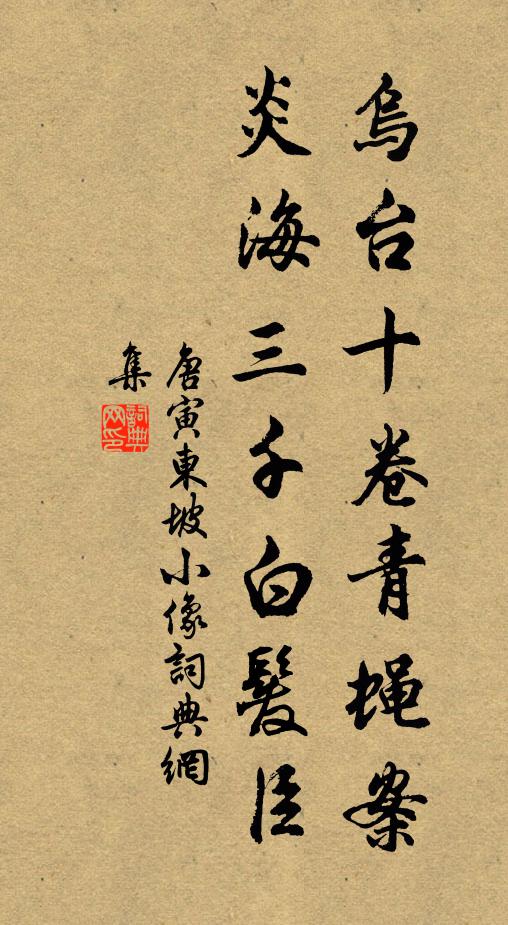 烏台十卷青蝇案
炎海三千白髮臣
唐寅東坡小像詞典網
集
詞典
网印